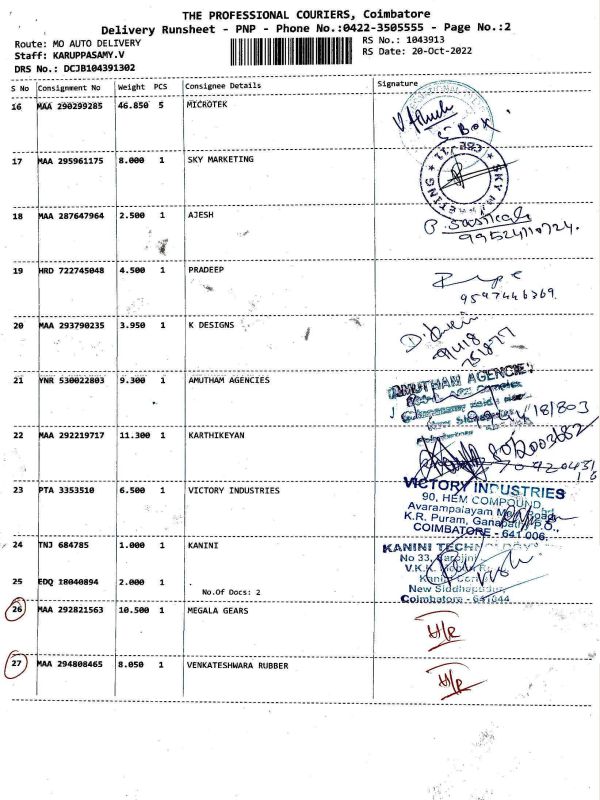 THE PROFESSIONAL COURIERS, Coimbatore
Delivery Runsheet - PNP - Phone No.:0422-3505555 - Page No.:2
Route: MO AUTO DELIVERY
Staff: KARUPPASAMY.V
DRS No.: DCJB104391302
RS No.: 1043913
RS Date: 20-Oct-2022
S No Consignment No Weight PCS Consignee Details Signature
16 MAA 290299285 46.850 5 MICROTEK
5 Box
17 MAA 295961175 8.000 1 SKY MARKETING
SKY MARKETING
18 MAA 287647964 2.500 1 AJESH
19 HRD 722745048 4.500 1 PRADEEP
9597446369
20 MAA 293790235 3.950 1 K DESIGNS
21 YNR 530022803 9.300 1 AMUTHAM AGENCIES
AMUTHAM AGENCIES
22 MAA 292219717 11.300 1 KARTHIKEYAN
23 PTA 3353510 6.500 1 VICTORY INDUSTRIES
VICTORY INDUSTRIES
90, HEM COMPOUND,
Avarampalayam Main Road,
K.R. Puram, Ganapathy P.O.,
COIMBATORE - 641 006.
24 TNJ 684785 1.000 1 KANINI
KANINI
No 33,
New Siddhapudur,
Coimbatore - 641044
25 EDQ 18040894 2.000 1
No.Of Docs: 2
26 MAA 292821563 10.500 1 MEGALA GEARS
H/R
27 MAA 294808465 8.050 1 VENKATESHWARA RUBBER
H/R